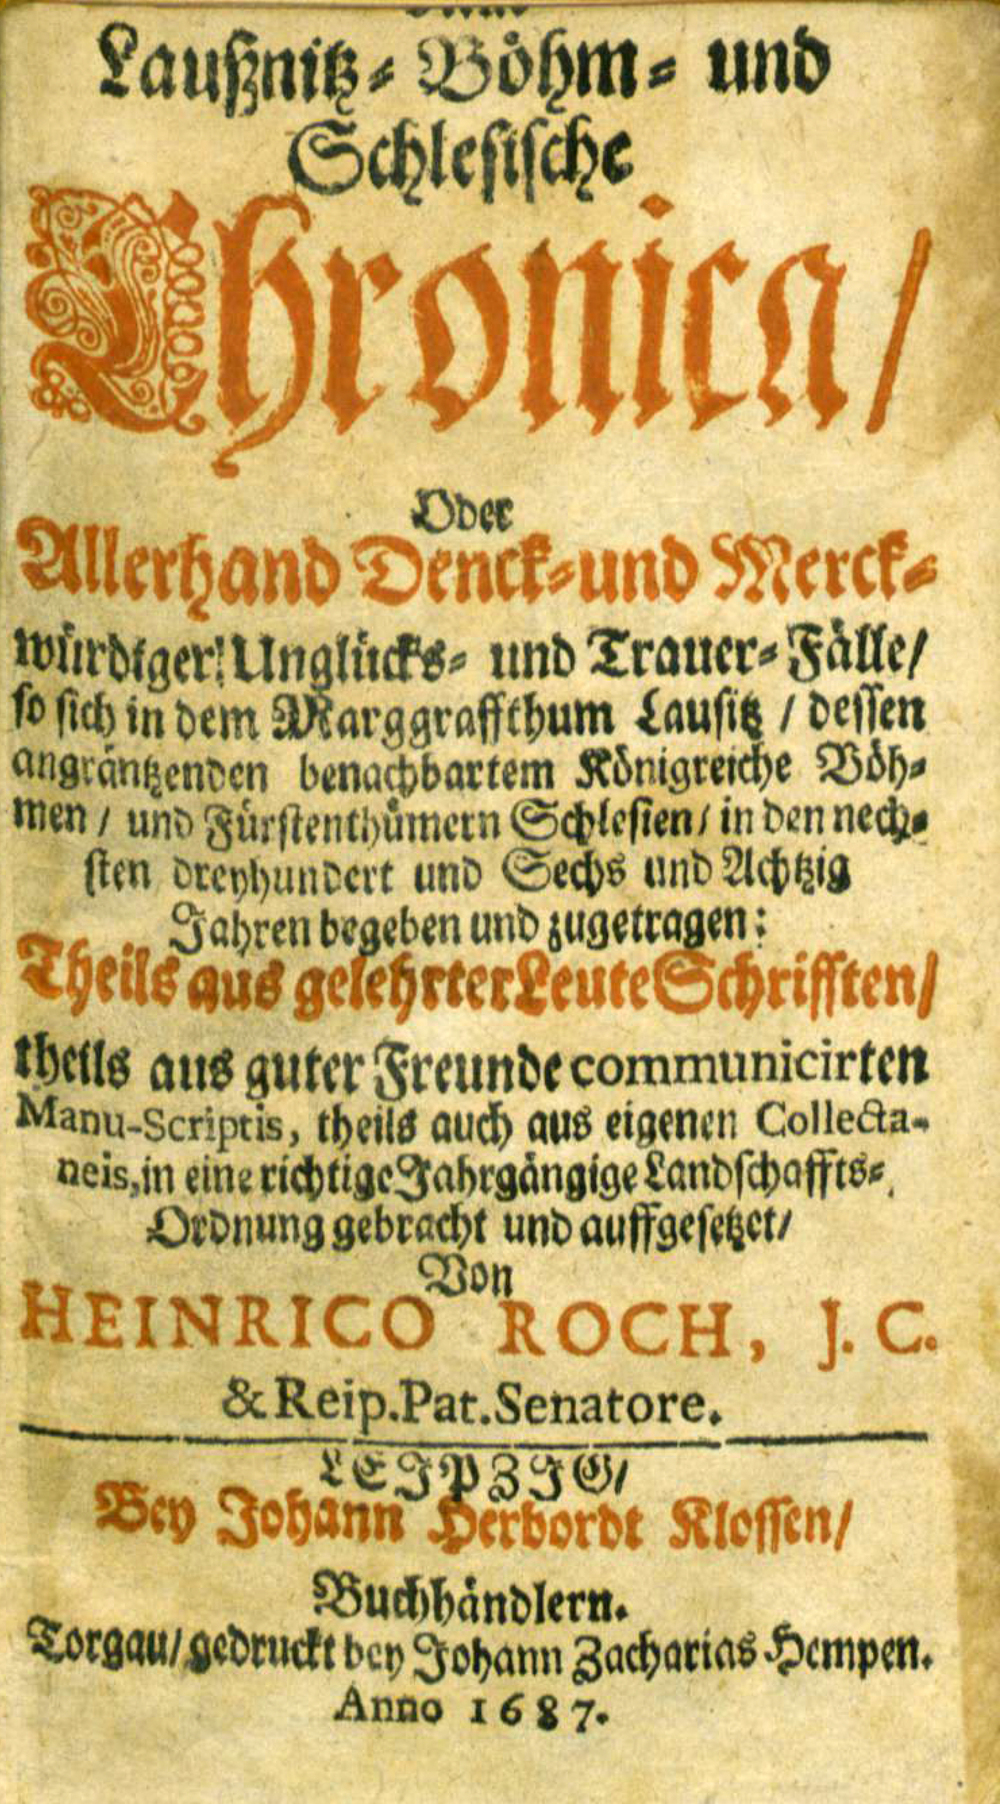 Laußnitz- Böhm- und
Schlesische
Chronica/
Oder
Allerhand Denck-und Merck-
würdiger! Unglücks- und Trauer-Fälle/
so sich in dem Marggraffthum Lausitz / dessen
angräntzenden benachbartem Königreiche Böh-
men / und Fürstenthümern Schlesien/ in den nech-
sten dreyhundert und Sechs und Achtzig
Jahren begeben und zugetragen:
Theils aus gelehrter Leute Schrifften/
theils aus guter Freunde communicirten
Manu-Scriptis, theils auch aus eigenen Collecta-
neis, in eine richtige Jahrgängige Landschaffts-
Ordnung gebracht und auffgesetzet/
Von
HEINRICO ROCH, J. C.
& Reip. Pat. Senatore.
LEJPZJG/
Bey Johann Herbordt Klossen/
Buchhändlern.
Torgau/ gedruckt bey Johann Zacharias Hempen.
Anno 1687.